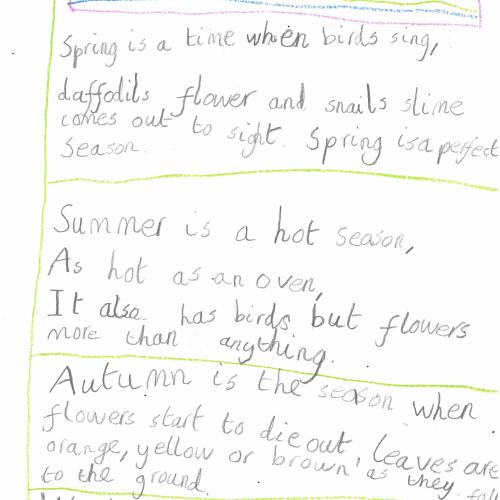 Spring is a time when birds sing,
daffodils flower and snails slime
comes out to sight. Spring is a perfect
Season.
Summer is a hot season,
As hot as an oven,
It also has birds but flowers
more than anything.
Autumn is the season when
flowers start to die out, leaves are
orange, yellow or brown as they
to the ground.